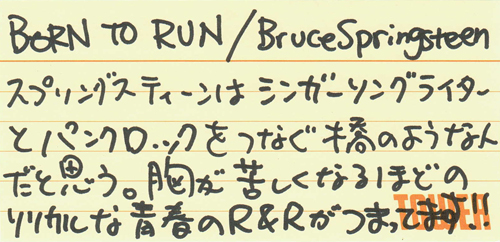 BORN TO RUN / BruceSpringsteen
スプリングスティーンはシンガーソングライター
とパンクロックをつなぐ橋のような人
だと思う。胸が苦しくなるほどの
リリカルな青春のR&Rがつまってます!!
TOWER